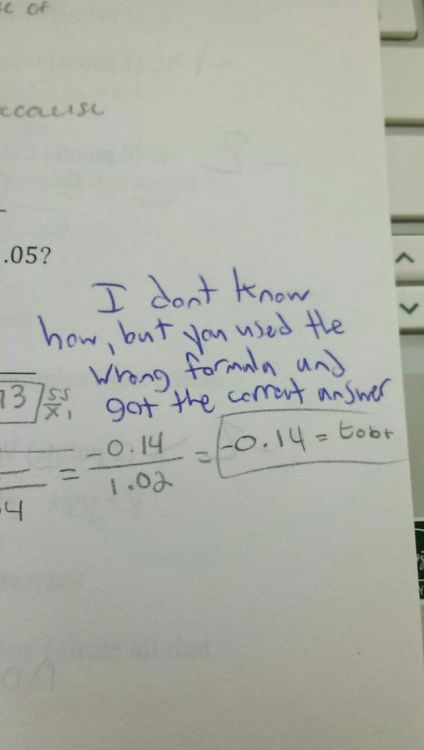 of
because
.05?
I dont know
how, but you used the
wrong formula and
got the correct answer
73 SS X1
-0.14 = -0.14 = tobt
1.02
04
all that